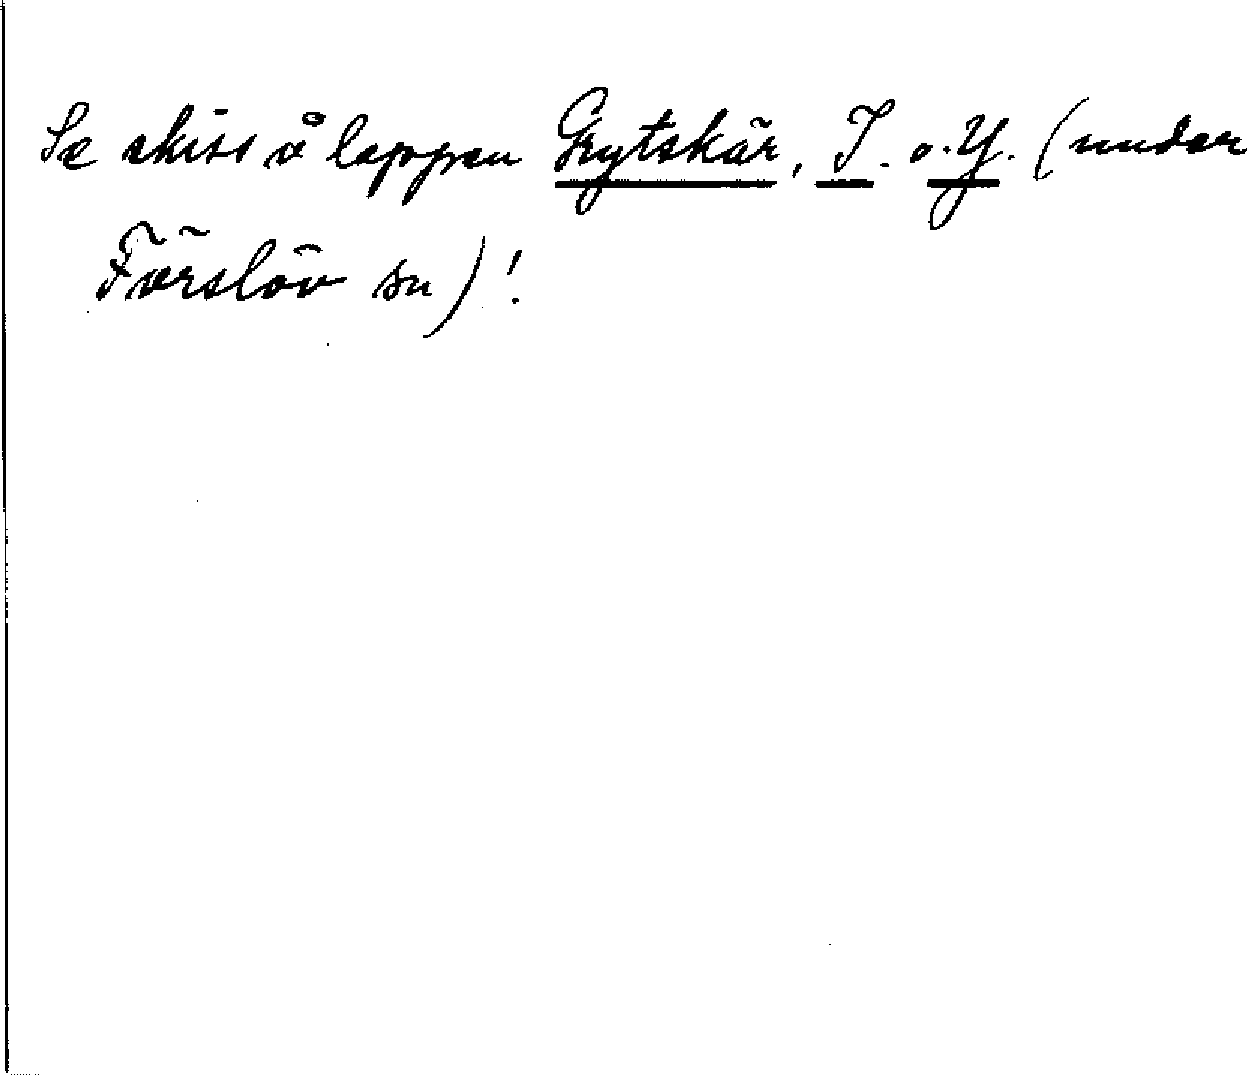 Se skiss å lappen Grytskär, I. o. Y. (under
Förslöv sn)!